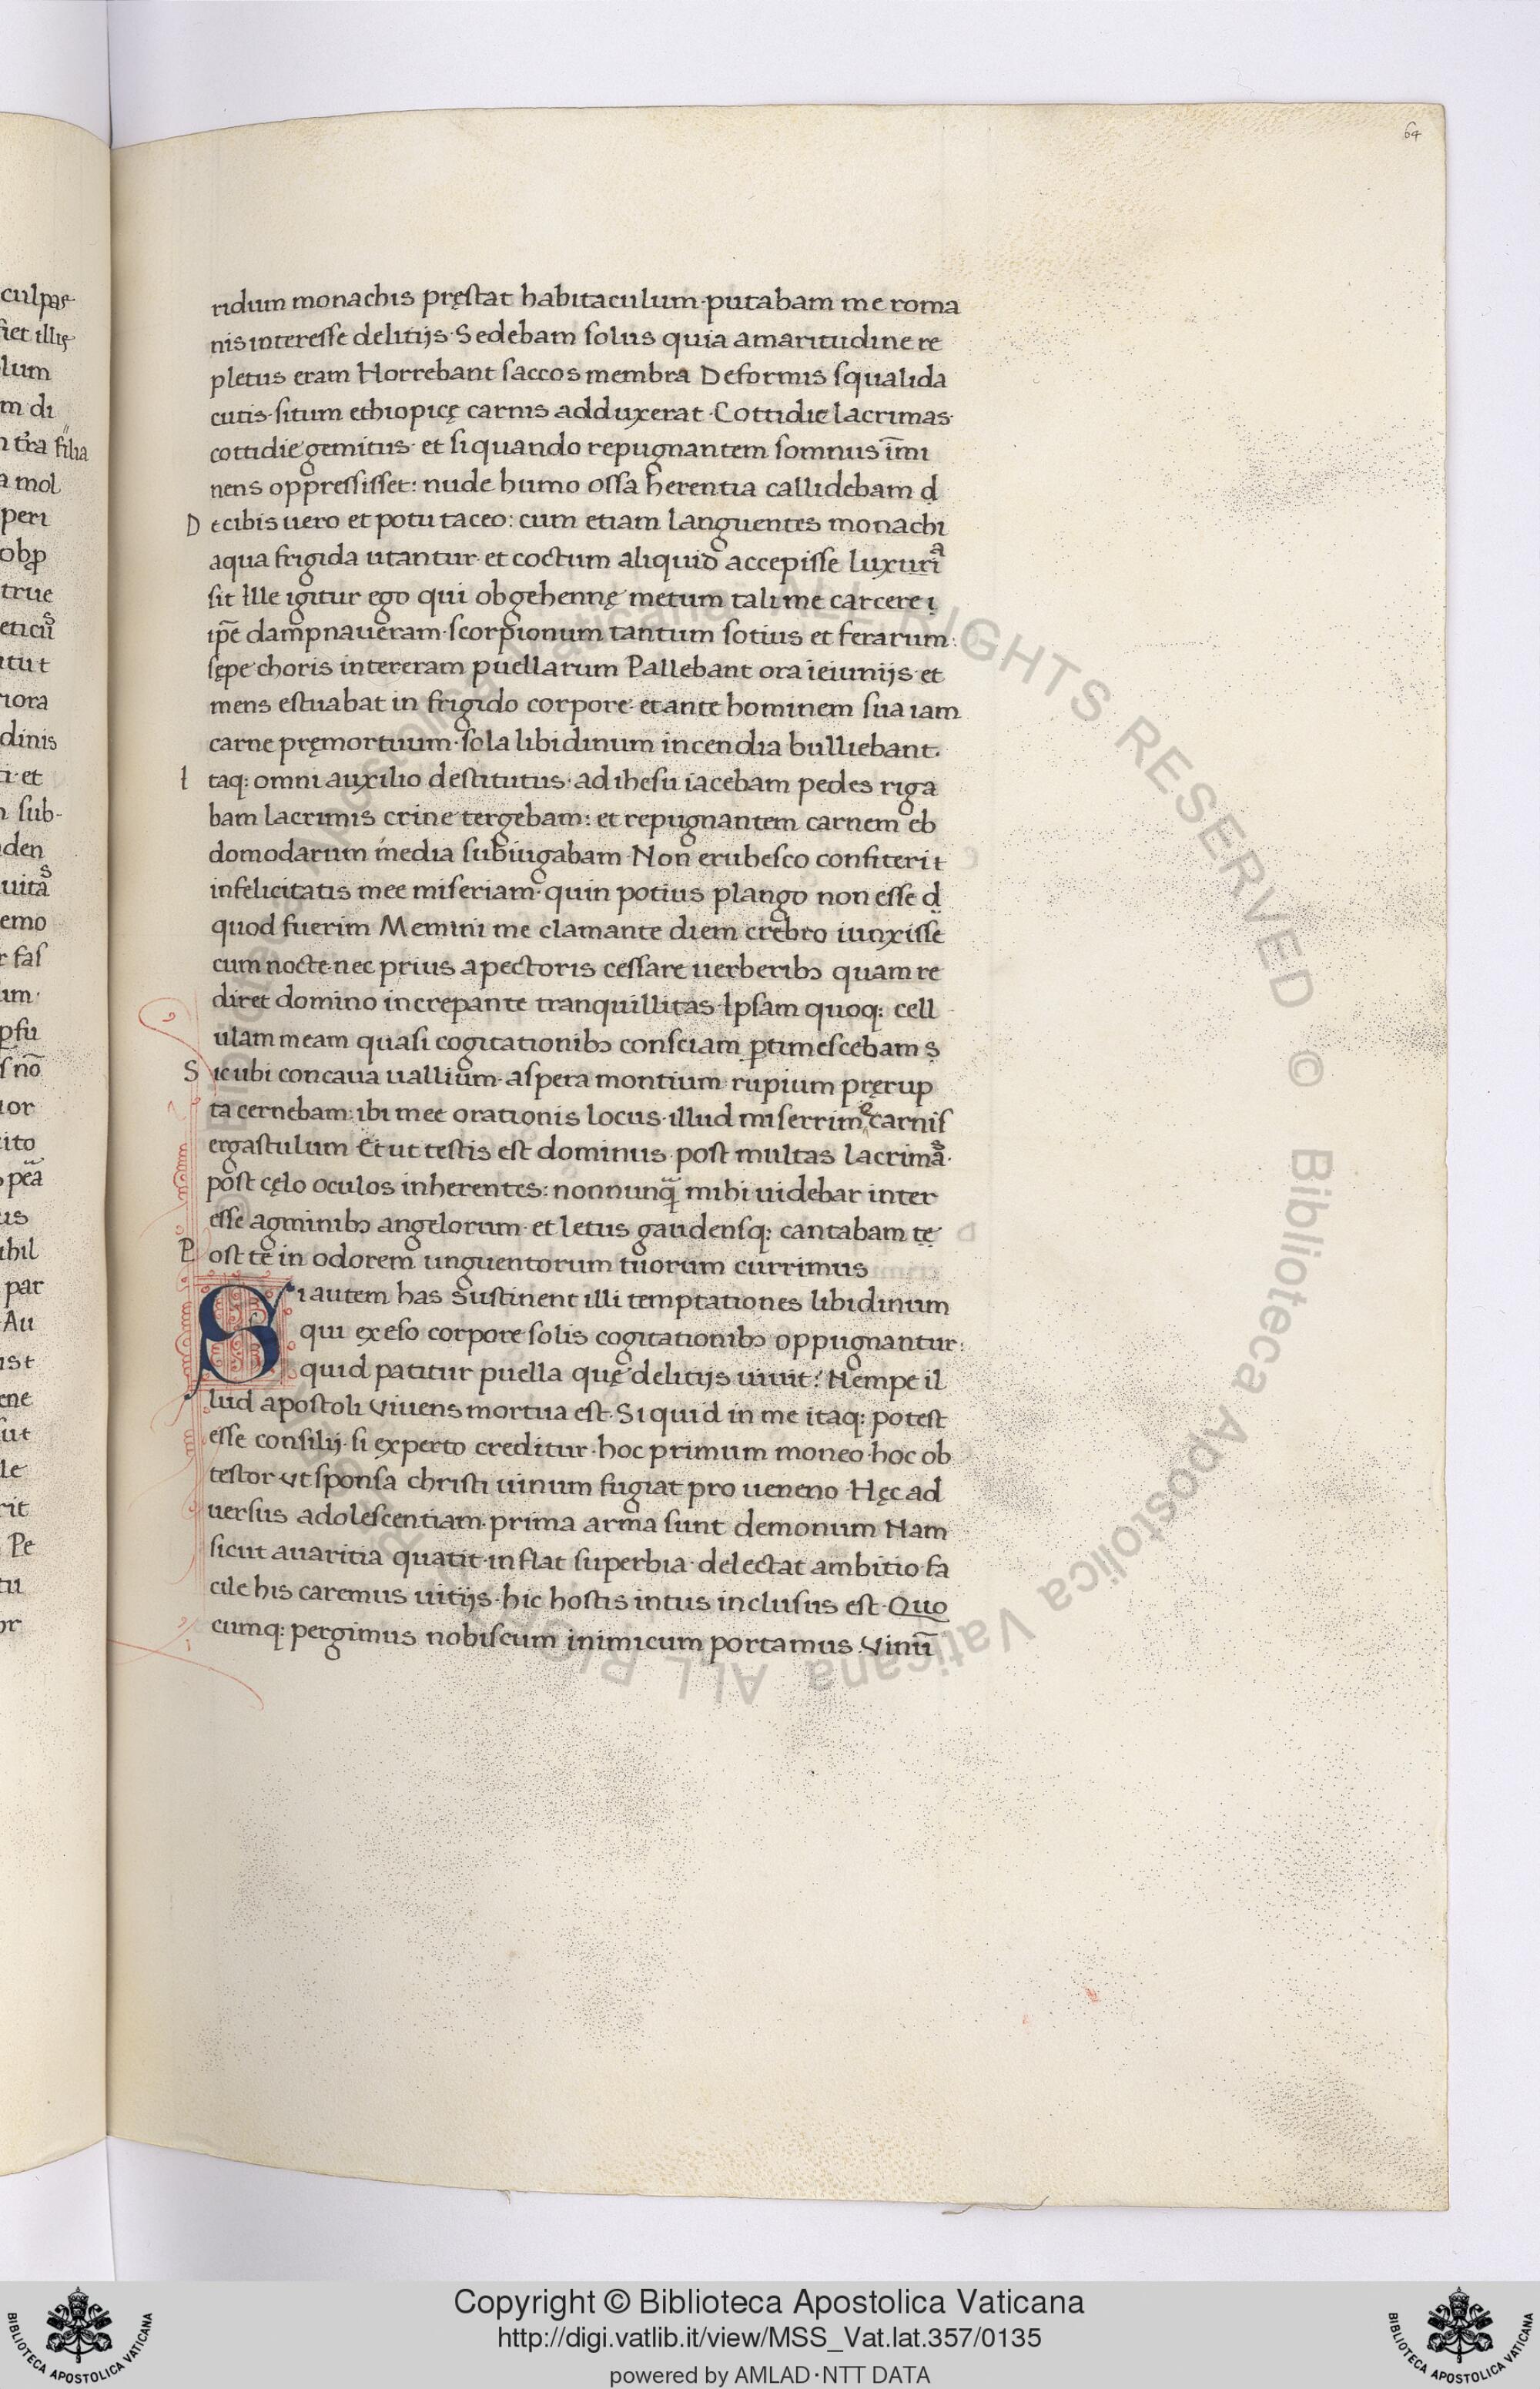 64
culpas
fiet illis
lum
m di
n tr̃a filia
a mol
peri
obp
true
eticũs
itut
riora
dinis
ti· et
n sub-
den
uitãs
emo
r fas
um·
psu
s nõ
ior
ito
peã
us
ibil
par
Au
ist
ene
ut
le
rit
Pe
tu
or
ridum monachis pręstat habitaculum· putabam me roma
nis interesse delitijs· Sedebam solus quia amaritudine re
pletus eram Horrebant saccos membra Deformis squalida
cutis· situm ethiopicę carnis adduxerat· Cottidie lacrimas·
cottidie gemitus· et si quando repugnantem somnus im̃i
nens oppressisset: nude humo ossa herentia callidebam d
D e cibis uero et potu taceo: cum etiam languentes monachi
aqua frigida utantur· et coctum aliquid accepisse luxuria
sit Ille igitur ego qui ob gehennę metum tali me carcere i
ip̃e dampnaueram· scorpionum tantum sotius et ferarum·
sępe choris intereram puellarum Pallebant ora ieiunijs· et
mens estuabat in frigido corpore· et ante hominem sua iam
carne pręmortuum· sola libidinum incendia bulliebant·
I taq: omni auxilio destitutus· ad ihesu iacebam pedes riga
bam lacrimis crine tergebam: et repugnantem carnem eb
domodarum inedia subiugabam· Non erubesco confiteri i
infelicitatis mee miseriam· quin potius plango non esse d
quod fuerim Memini me clamante diem crebro iunxisse
cum nocte· nec prius a pectoris cessare uerberibꝫ quam re
diret domino increpante tranquillitas· Ipsam quoq: cell
ulam meam quasi cogitationibꝫ consciam ꝑtimescebam s
S icubi concaua uallium· aspera montium· rupium pręrup
ta cernebam: ibi mee orationis locus· illud miserrimę carnis
ergastulum Et ut testis est dominus· post multas lacrimãs·
post cęlo oculos inherentes: nonnunq̃ mihi uidebar inter
esse agminibꝫ angelorum· et letus gaudensq: cantabam te
P ost te in odorem unguentorum tuorum currimus
Si autem has sustinent illi temptationes libidinum
qui exeso corpore solis cogitationibꝫ oppugnantur:
quid patitur puella quę delitijs uiuit? Nempe il
lud apostoli viuens mortua est· Si quid in me itaq: potest
esse consilij· si experto creditur· hoc primum moneo· hoc ob
testor vt sponsa christi uinum fugiat pro ueneno· Hęc ad
uersus adolescentiam· prima arma sunt demonum Nam
sicut auaritia quatit· inflat superbia· delectat ambitio· fa
cile his caremus uitijs· hic hostis intus inclusus est· Quo
cumq: pergimus nobiscum inimicum portamus· Vinũ
© Biblioteca Apostolica Vaticana ALL RIGHTS RESERVED
BIBLIOTECA APOSTOLICA VATICANA
Copyright © Biblioteca Apostolica Vaticana
http://digi.vatlib.it/view/MSS_Vat.lat.357/0135
powered by AMLAD·NTT DATA
BIBLIOTECA APOSTOLICA VATICANA